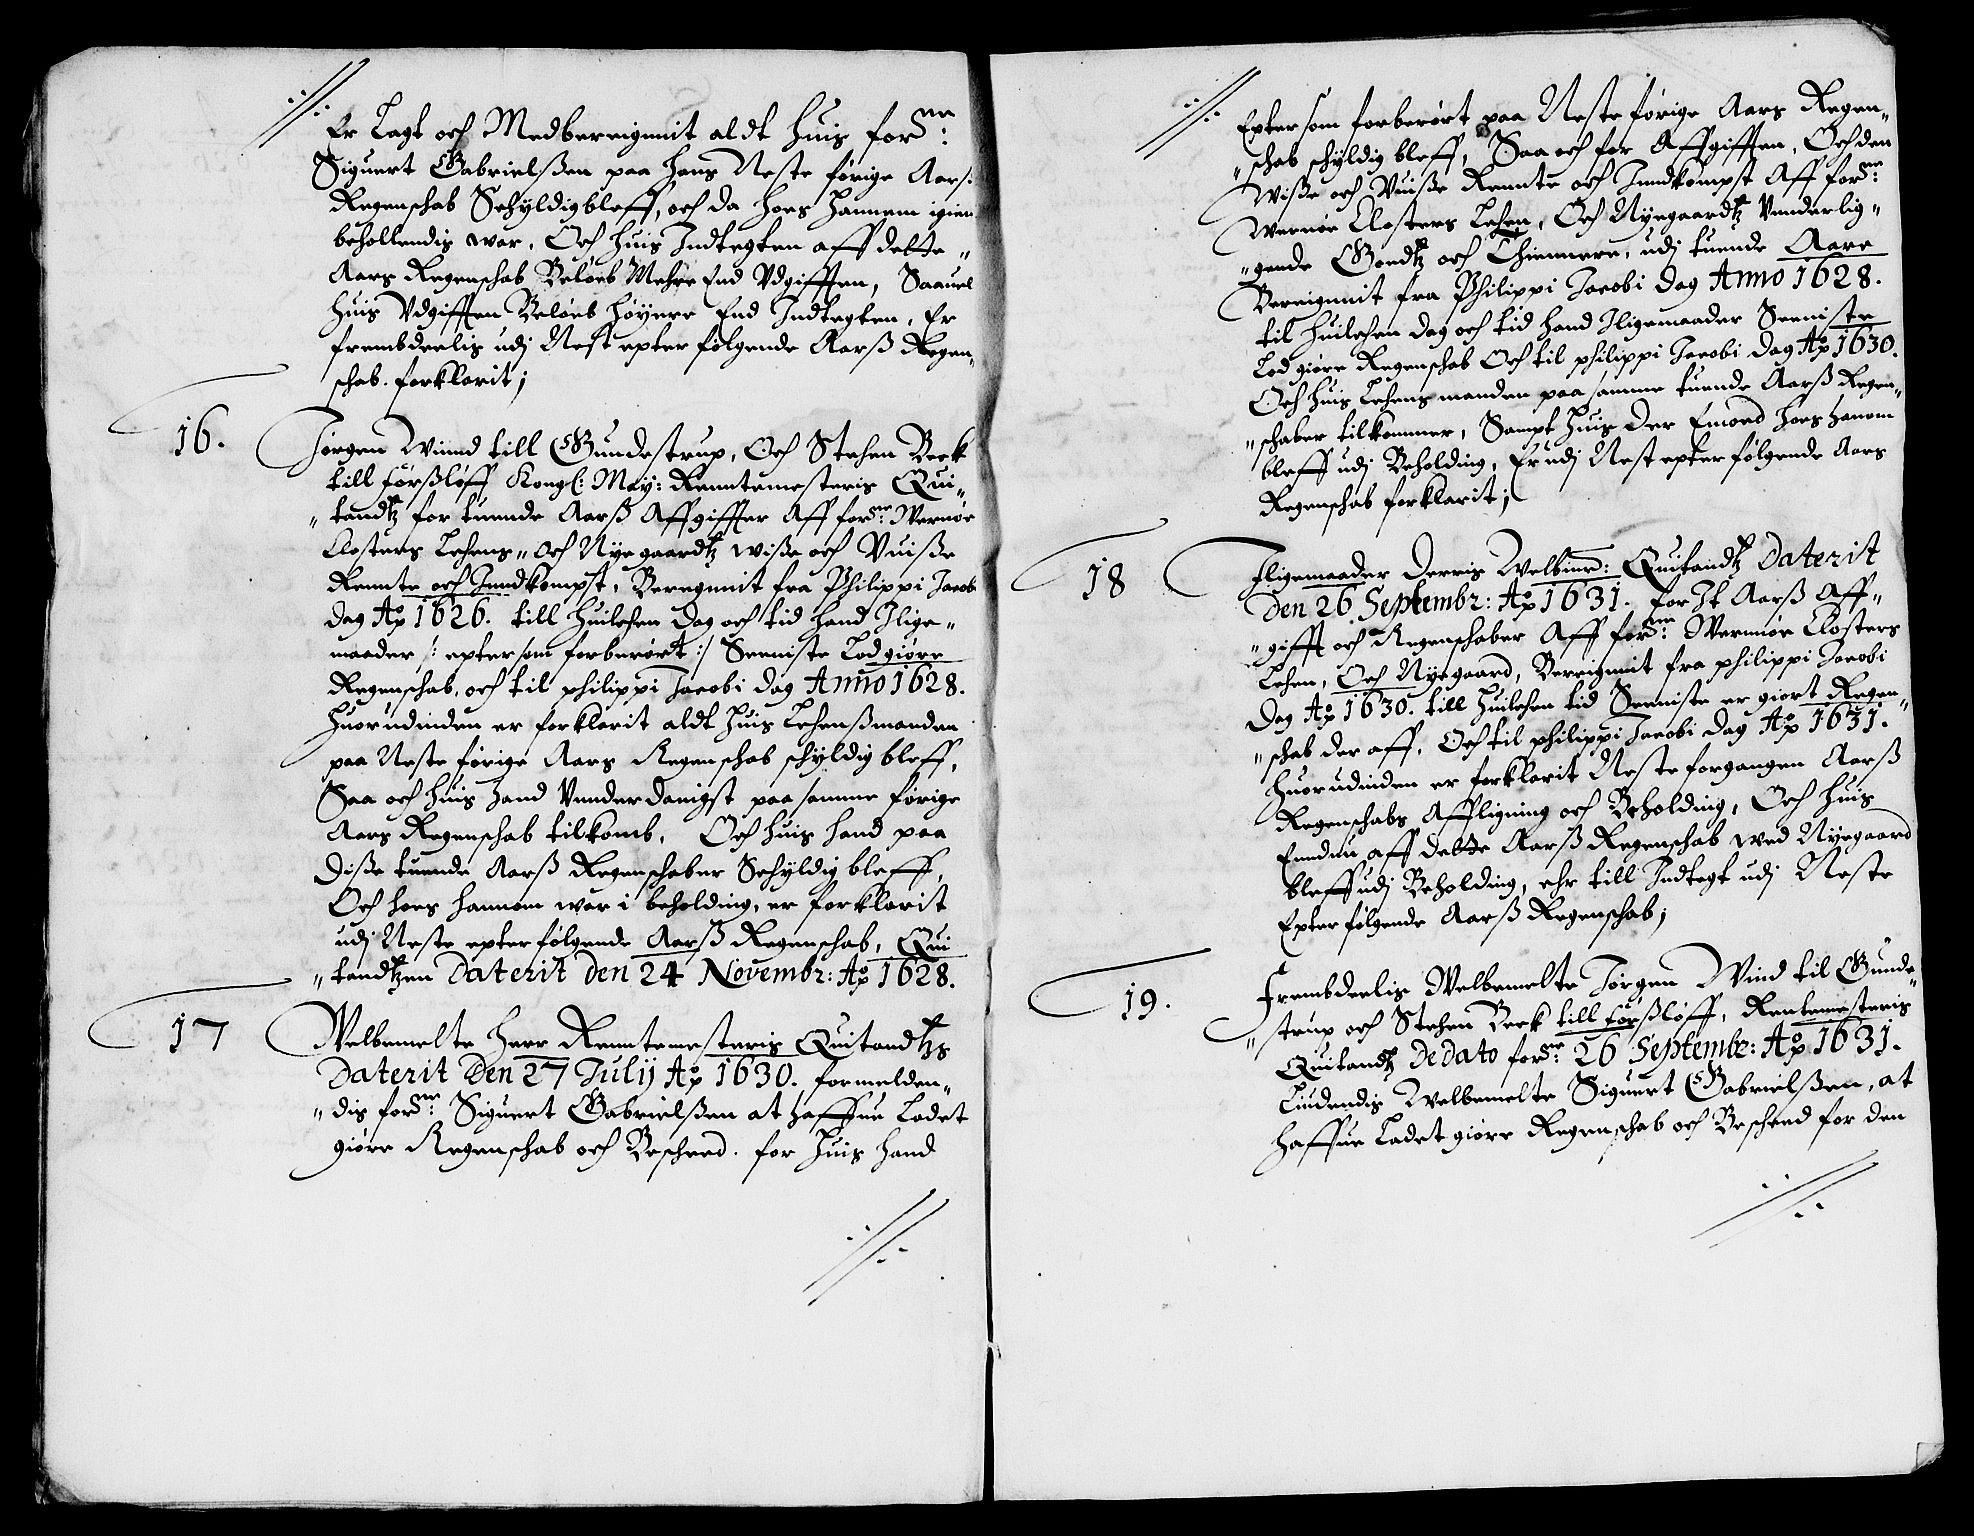 Er Lagt och Medbereignnit aldt huis for:ne
Siguert Gabrielsßen paa hans Neste førige Aars
Regenschab Schyldig bleff, och da hoes hannem igien
behollendis war, Och huis Indtegten aff dette
Aars Regenschab Beløeb Mehre End Vdgifften, Saauel
huis Vdgifften Beløeb høynre End Indtegten, Er
frembdeelis udj Nest epter følgende Aarß Regen„
schab. forklarit;
16. Jørgen Wind till Gundestrup, Och Stehen Beek
till førßløff Kongl: May: Renntemesteris Qui„
„tandtz for tuende Aarß Affgiffter Aff for:ne Wernør
Closters Lehens„ och Nyegaardtz wiße och Vuiße
Rennte och Inndkompst, Beregnnit fra Philippi Jacobi
dag A:o 1626. till huilchen dag och tid hand Lige„
maader /: epter som forberørt :/ Seeniste Lod giøre
Regenschab, och til philippi Jacobi dag Anno 1628.
huorudinden er forklarit aldt huis Lehenßmanden
paa Neste førige Aars Regenschab schyldig bleff,
Saa och huis hand Vnderdanigst paa samme førige
Aars Regenschab tilkomb. Och huis hand paa
diße tuende Aarß Regenschaber Schyldig bleff,
Och hoes hannem war i beholding, er forklarit
udj Neste epter følgende Aarß Regenschab, Qui
„tandtzen Daterit den 24 Novembr: A:o 1628.
17 Welbemelte Herr Renntemesteris Quitandtzs
Daterit Den 27 Julij A:o 1630. formelden„
„dis for:ne Siguert Gabrielsßen at haffue Ladet
giøre Regenschab och Bescheed. for huis hand
Epter som forberørt paa Neste førige Aars Regen„
„schab schyldig bleff, Saa och for Affgifften, Och den
Wiße och Vuiße Rennte och Inndkompst Aff for:ne
Wernør Closters Lehen, Och Nyegaardtz Vnderlig„
„gende Goedtz och Thiennere, udj tuende Aare
Bereignnit fra Philippi Jacobi Dag Anno 1628.
til huilchen dag och tid hand Ligemaader Seeniste
Lod giøre Regenschab Och til philippi Jacobi dag A:o 1630.
Och huis Lehens manden paa samme tuende Aarß Regen„
„schaber tilkommer, Sampt huis der Emoed hoes hanom
bleff udj Beholding, Er udj Nest epter følgende Aars
Regenschab forklarit;
18 Ligemaader Derris Welbiur: Quitandtz Daterit
Den 26 Septembr: A:o 1631. for It Aarß Aff„
„gifft och Regenschaber Aff for:ne Wernnør Closters
Lehen, Och Nyegaard, Bereignnit fra philippi Jacobi
Dag A:o 1630. till huilchen tid Seeniste er giort Regen„
„schab der aff, Och til philippi Jacobi dag A:o 1631.
huorudinden er forklarit Neste forgangen Aarß
Regenschabs Affligning och Beholding, Och huis
Enndnu aff dette Aarß Regenschab wed Nyegaard
bleff udj Beholding, ehr till Indtegt udj Neste
Epter følgende Aarß Regenschab;
19. Frembdeelis Welbemelte Jørgen Wind til Gunde„
„strup och Stehen Beek till førßløff, Rentemesteris
Quitandtz De dato for:ne 26 Septembr: A:o 1631.
Liudendis Welbemelte Siguert Gabrielsßen, at
haffue Ladet giøre Regenschab och Bescheed for den